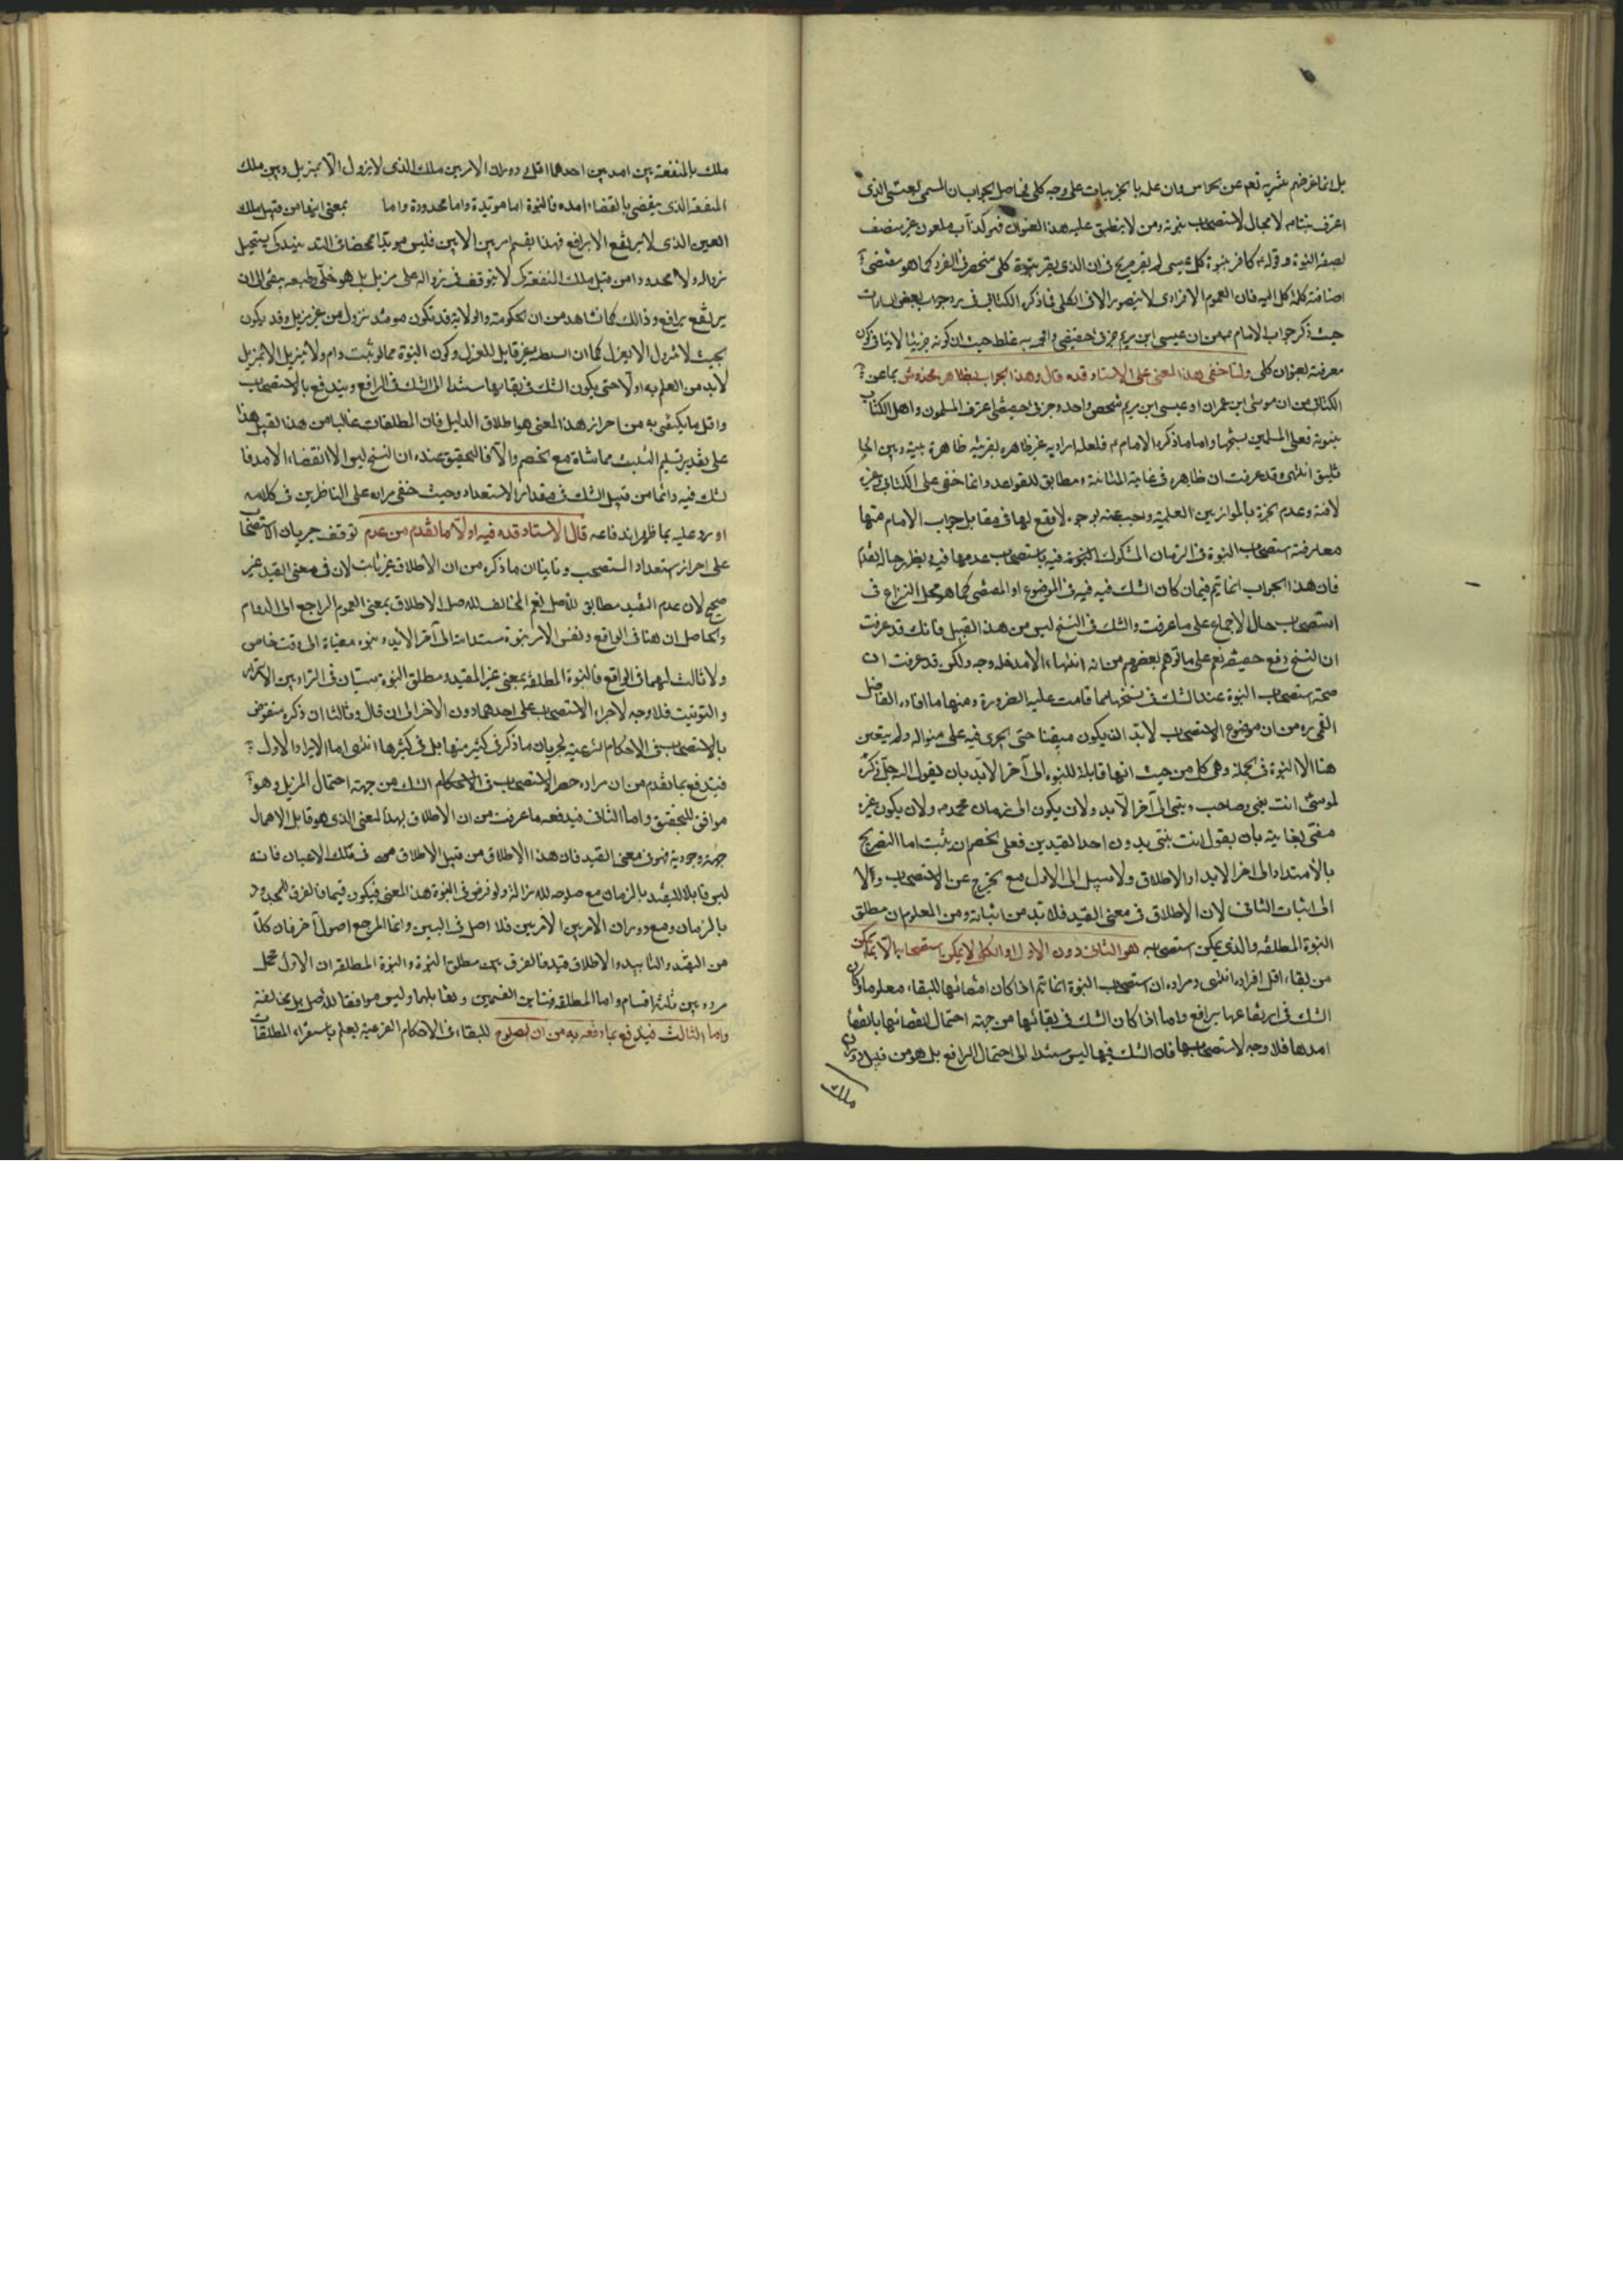 بل انما غرضهم تنزيهه تعم عن الحواس وان علمه بالجزئيات على وجه كلى فحاصل الجواب ان المسمى بعيسى الذى
اعترف بنبوته لا مجال لاستصحاب نبوته ومن لا ينطبق عليه هذا العنوان فهو كذاب ملعون غير متصف
بصفة النبوة وقوله كافر بنبوة كل عيسى لم يقر صريح فى ان الذى يقر بنبوته كلى منحصر فى الفرد كما هو مقتضى
اضافة كلمة كل اليه فان العموم الافرادى لا يتصور الا فى الكلى فما ذكره الكتابى فى رد جواب بعض السادات
حيث ذكر جواب الامام من ان عيسى ابن مريم جزئى حقيقى غلط حيث ان كونه جزئيا لا ينافى كون
معرفته بعنوان كلى ولما خفى هذا المعنى على الاستاد قده قال وهذا الجواب بظاهره مخدوش بما عن
الكتابى من ان موسى ابن عمران او عيسى ابن مريم شخص واحد وجزئى حقيقى اعترف المسلمون واهل الكتاب
بنبوته فعلى المسلمين نسخها واما ما ذكره الامام فلعله اراد به غير ظاهره بقرينة ظاهرة بينه وبين الجا
ثليق انتهى وقد عرفت ان ظاهره فى غاية المتانة ومطابق للقواعد وانما خفى على الكتابى وغيره
لانسه وعدم خبرته بالموازين العلمية واجيب عنه بوجوه لا وقع لها فى مقابل جواب الامام منها
معارضة استصحاب النبوة فى الزمان المشكوك النبوة فيه باستصحاب عدمها فيه يظهر حاله بما تقدم
فان هذا الجواب انما يتم فيما كان الشك فيه فى الموضوع او المقتضى كما هو محل النزاع فى
استصحاب حال الاجماع على ما عرفت والشك فى النسخ ليس من هذا القبيل فانك قد عرفت
ان النسخ رفع حقيقة نعم على ما توهم بعضهم من انه انتهاء الامد فله وجه ولكن قد عرفت ان
صحة استصحاب النبوة عند الشك فى نسخها مما قامت عليه الضرورة ومنها ما افاده الفاضل
القمى ره من ان موضوع الاستصحاب لا بد ان يكون متيقنا حتى يجرى فيه على منواله ولم يتعين
هنا الا النبوة فى الجملة وهى كلى من حيث انها قابلة للنبوة الى آخر الابد بان يقول الله جل ذكره
لموسى انت نبيى وصاحب دينى الى آخر الابد ولان يكون الى زمان محمد ولان يكون غير
مغيى بغاية بان يقول انت نبيى بدون احد القيدين فعلى الخصم ان يثبت اما التصريح
بالامتداد الى اخر الابد او الاطلاق ولا سبيل الى الاول مع انه يخرج عن الاستصحاب ولا
الى اثبات الثانى لان الاطلاق فى معنى القيد فلا بد من اثباته ومن المعلوم ان مطلق
النبوة غير النبوة المطلقه والذى يمكن استصحابه هو الثانى دون الاول اذ الكلى لا يمكن استصحابه الا بما يمكن
من بقاء اقل افراده انتهى ومراده ان استصحاب النبوة انما يتم اذا كان اقتضائها للبقاء معلوما وكان
الشك فى ارتفاعها برافع واما اذا كان الشك فى بقائها من جهة احتمال انقضائها بانقضاء
امدها فلا وجه لاستصحابها فان الشك فيها ليس مستندا الى احتمال الرافع بل هو من قبيل دوران
ملك
ملك بالمنفعة بين امدين احدهما اقل ودوران الامر بين ملك الذى لا يزول الا بمزيل وبين ملك
المنفعة الذى ينقضى بانقضاء امده فالنبوة اما موبدة واما محدودة واما بمعنى انها من قبيل ملك
العين الذى لا يرتفع الا برافع فهذا يقسم امر بين الامرين فليس موبدا محضا فى الته بنيدكى يستحيل
زواله ولا محدودا من قبيل ملك المنفعة كى لا يتوقف فى زواله على مزيل بل هو خلى وطبعه يبقى الى ان
يرتفع برافع وذالك كما نشاهد من ان الحكومة والولاية قد تكون موقتة تزول من غير مزيل وقد يكون
بحيث لا تزول الا بعزل كما ان السلطنة غير قابل للعزل وكون النبوة مما لو ثبت دام ولا يزيل الا بمزيل
لا بد من العلم به اولا حتى يكون الشك فى بقائها مستندا الى الشك فى الرافع ويندفع بالاستصحاب
واقل ما يكتفى به من احراز هذا المعنى هو اطلاق الدليل فان المطلقات غالبا من هذا القبيل هذا
على تقدير تسليم التثليث مماشاة مع الخصم والا فالتحقيق عنده ان النسخ ليس الا انقضاء الامد فا
لشك فيه دائما من قبيل الشك فى مقدار الاستعداد وحيث خفى مراده على الناظرين فى كلامه
اورد عليه بما ظهر اندفاعه قال الاستاد قده فيه اولا ما تقدم من عدم توقف جريان الاستصحاب
على احراز استعداد المستصحب وثانيا ان ما ذكره من ان الاطلاق غير ثابت لان فى معنى القيد غير
صحيح لان عدم التقييد مطابق للاصل نعم المخالف للاصل الاطلاق بمعنى العموم الراجع الى الدوام
والحاصل ان هنا فى الواقع ونفس الامر نبوة مستدامة الى آخر الابد ونبوة مغياة الى وقت خاص
ولا ثالث لهما فى الواقع فالنبوة المطلقة بمعنى غير المقيد ومطلق النبوة سيان فى الترديد بين الاستمرار
والتوقيت فلا وجه لاجراء الاستصحاب على احدهما دون الاخر الى ان قال وثالثا ان ذكره منقوض
بالاستصحاب فى الاحكام الشرعية لجريان ما ذكر فى كثير منها بل فى اكثرها انتهى اما الايراد الاول
فيندفع بما تقدم من ان مراده حصر الاستصحاب فى الاحكام الشك من جهة احتمال المزيل وهو
موافق للتحقيق واما الثانى فيدفعه ما عرفت من ان الاطلاق بهذا المعنى الذى هو قابل الاهمال
جهة وجودية فهو فى معنى القيد فان هذا الاطلاق من قبيل الاطلاق فى ملك الاعيان فانه
ليس قابلا للتقييد بالزمان مع صلوحه للازالة ولو فرض فى النبوة هذا المعنى فيكون قيما فالفرق للمحدود
بالزمان ومع دوران الامر بين الامرين فلا اصل فى البين وانما المرجع اصول آخر فان كلا
من التقييد والتابيد والاطلاق قيد فالفرق بين مطلق النبوة والنبوة المطلقة ان الاول محتمل
مردد بين ثلثة اقسام واما المطلقة فتباين القسمين وتقابلهما وليس موافقا للاصل بل مخالفته
واما الثالث فيندفع بما دفعه به من ان الصلوح للبقاء فى الاحكام الفرعية يعلم باستقراء المطلقات